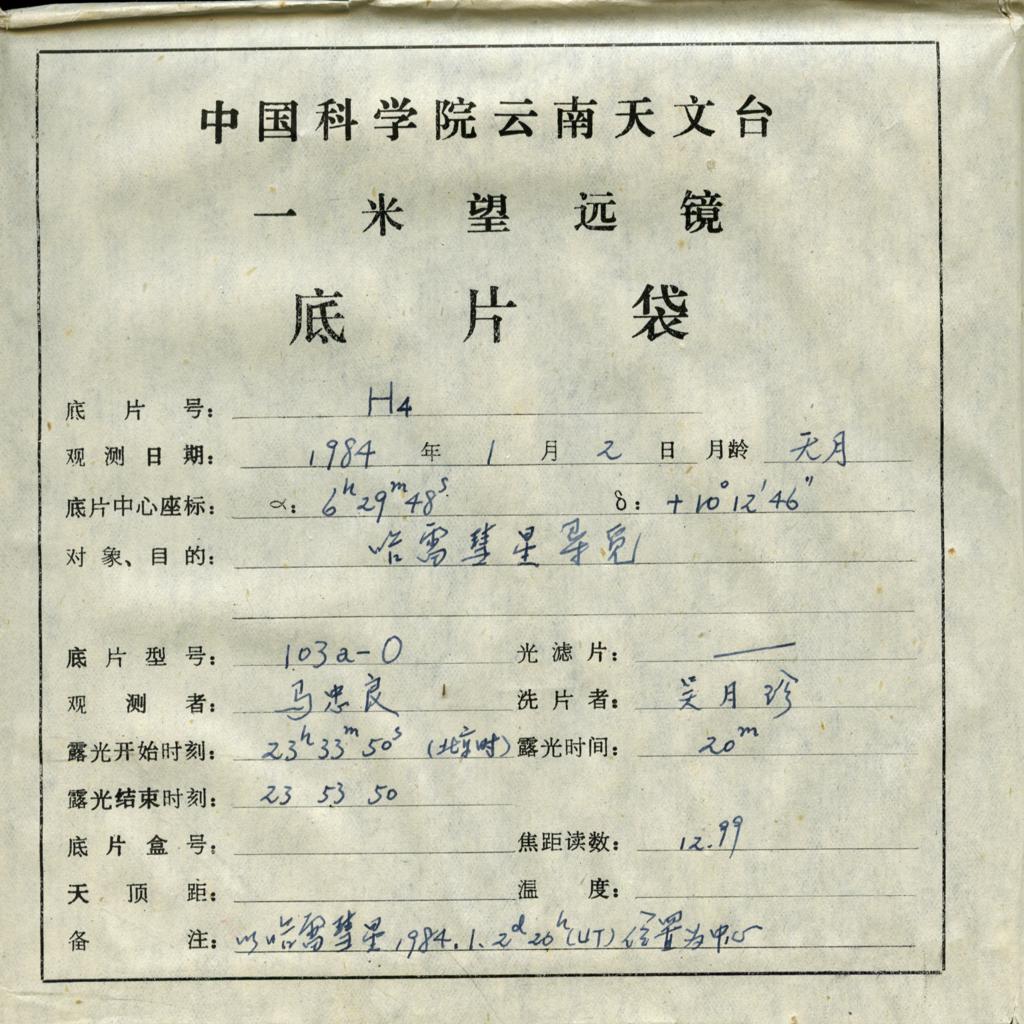 中国科学院云南天文台
一米望远镜
底片袋
底片号： H4
观测日期： 1984 年 1 月 2 日 月龄 无月
底片中心座标： α： 6ʰ29ᵐ48ˢ δ： +10°12′46″
对象、目的： 哈雷彗星寻觅
底片型号： 103a-O 光滤片： —
观测者： 马忠良 洗片者： 吴月珍
露光开始时刻： 23ʰ33ᵐ50ˢ (北京时) 露光时间： 20ᵐ
露光结束时刻： 23 53 50
底片盒号： 焦距读数： 12.99
天顶距： 温度：
备注： 以哈雷彗星1984.1.2ᵈ20ʰ(UT)位置为中心